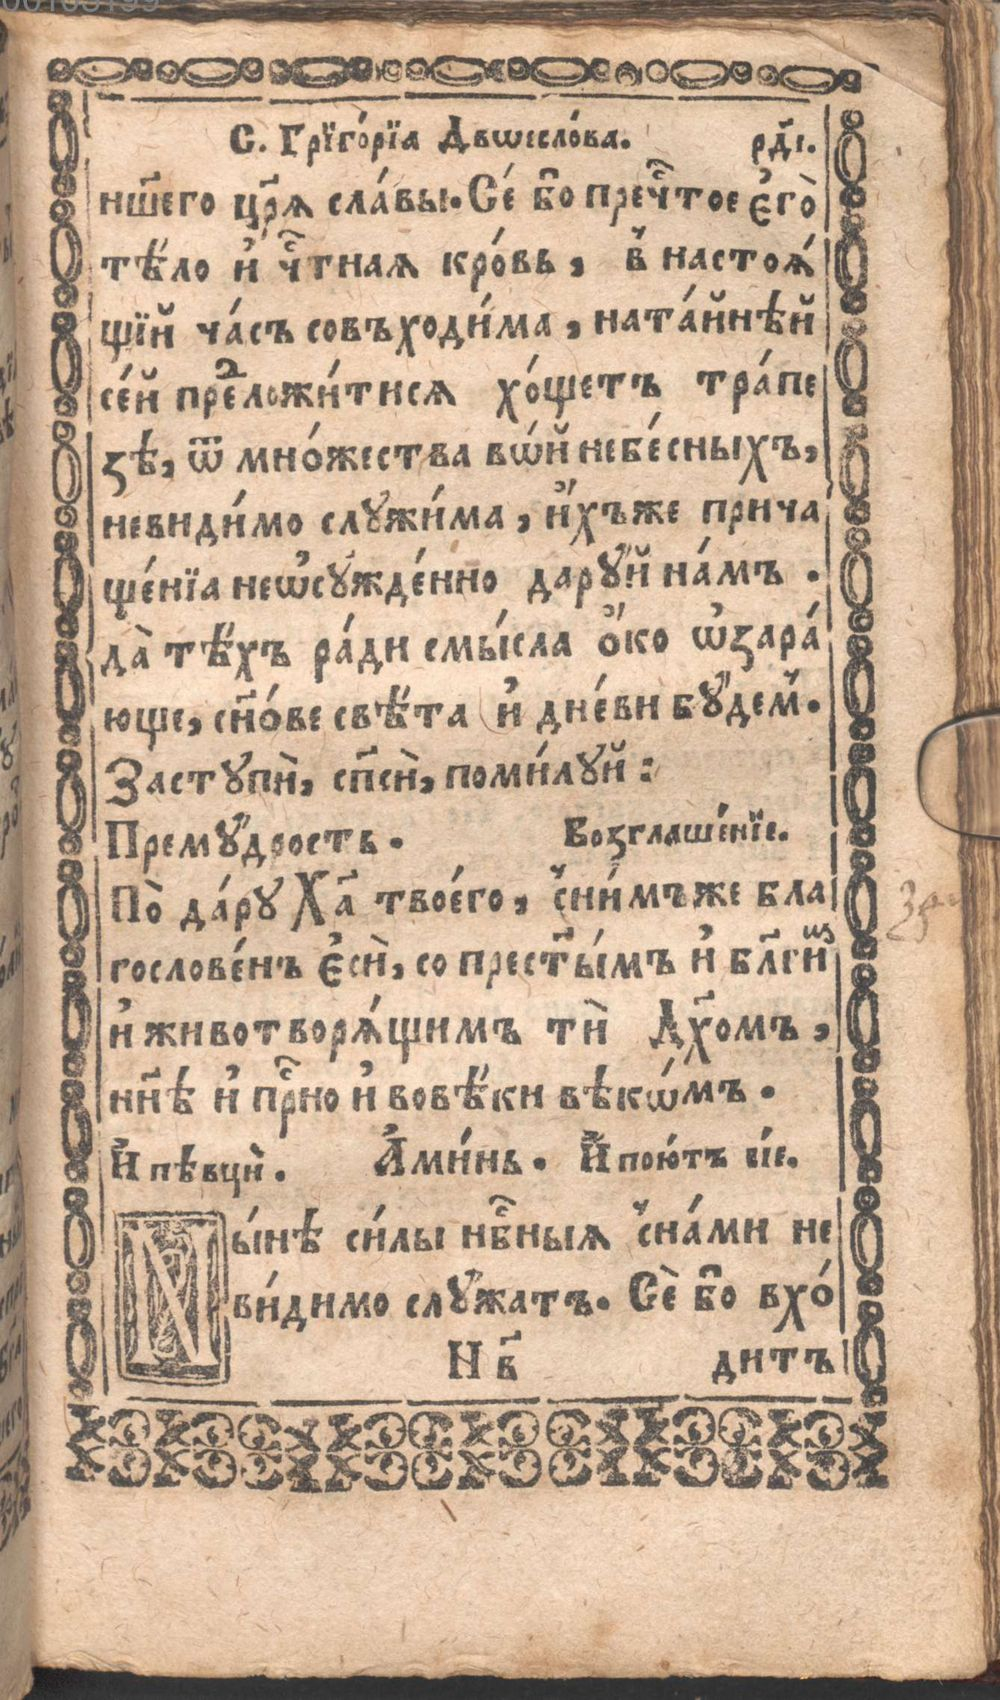 С. Грїго́рїа Двоесло́ва. рд҃і.
нш҃его цр҃ѧ сла́вы. Се́ бо пречⷭ҇тое є҆гѡ̀
тѣ́ло и҆ чⷭ҇тнаѧ кро́вь, в̾ настоѧ́
щїй ча́съ совъходи́ма, на та́йнѣй
се́й предложи́тисѧ хо́щетъ тра́пе
зѣ, ѿ мно́жества вѡ́й небе́сныхъ,
невиди́мо слꙋжи́ма, и҆́хъже прича
ще́нїа неѡ҆сꙋжде́нно дарꙋ́й на́мъ .
да̀ тѣ́хъ ра́ди смы́сла ѻ҆́ко ѡ҆зара́
юще, сн҃о́ве свѣ́та и҆ дне́ви бꙋ́демъ.
Застꙋпѝ, сп҃сѝ, поми́лꙋй :
Премꙋ́дрость . Возглаше́нїе.
По̀ да́рꙋ Хв҃а твоего́, с̾ни́мъже бла
гослове́нъ є҆сѝ, со прест҃ы́мъ и҆ бл҃ги́мъ
и҆ животворѧ́щимъ тѝ Дх҃омъ,
нн҃ѣ и҆ прⷭ҇но и҆ вовѣ́ки вѣкѡ́мъ .
И҆ пѣвцѝ . А҆ми́нь . И҆ пою́тъ сїе.
Ны́нѣ си́лы нбⷭ҇ныѧ с̾на́ми не
ви́димо слꙋ́жатъ. Сѐ бо вхо́
Н в҃ дитъ